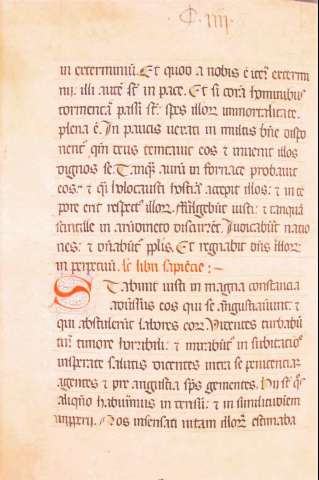 C. iiij.
in exterminiū. Et quod a nobis ē iter extermi
nii. illi autē st̄ in pace. Et si corā hominibus
tormenta passi st̄: spes illoꝝ immortalitate
plena ē. In paucis uexati in multis bñe dispo
nent̄. qm̄ deus temtauit eos ⁊ inuenit illos
dignos se. Tanqȝ aurū in fornace probauit
eos: ⁊ qͣsi holocausti hostiā accepit illos: ⁊ in te
pore erit respectꝰ illoꝝ. Fulgebūt iusti: ⁊ tanquā
scintille in arūdineto discurrēt. Iudicabūt natio
nes: ⁊ dñabūt᷑ pplis. Et regnabit dñs illoꝝ
in perpetuū. lc̄ libri sapiētie:
Stabunt iusti in magna constancia
aduersus eos qui se angustiauerūt: ⁊
qui abstulerūt labores eoꝝ. Videntes turbabū
tur timore horribili: ⁊ mirabūt᷑ in subitatiōe
insperate salutis dicentes intra se penitenciaȝ
agentes ⁊ pre angustia sp̄s gementes. Hii st̄ qͦs
aliqñ habuimus in derisū: ⁊ in similitudinem
improperii. Nos insensati uitam illoꝝ estimaba